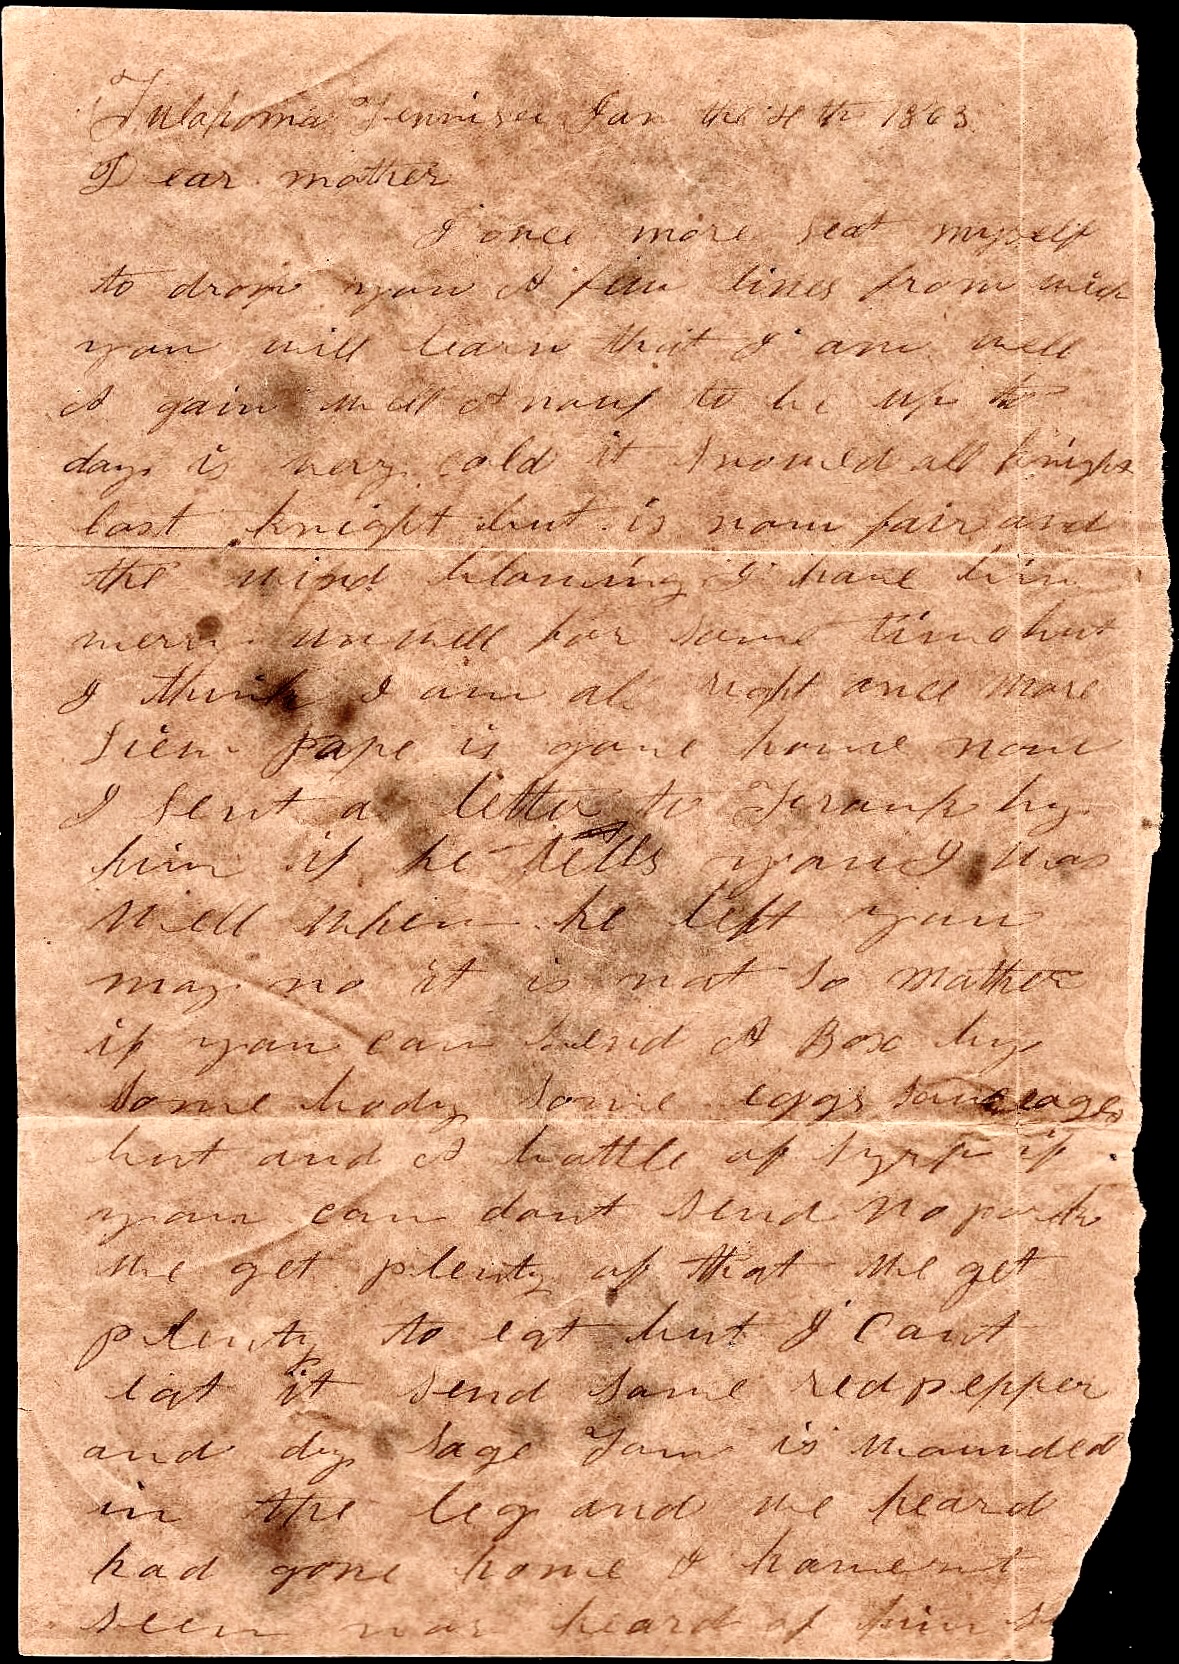 Tulahoma Tennisee Jan the 4th 1863
Dear mother
I once more seat myself
to drop you A few lines from wich
you will learn that I am well
A gain well Anouf to be up to
day is very cold it snowed all knight
last knight but is now fair and
the wind blowing I have bin
unwell for some time but
I think I am all right once more
pape is gone home now
I sent a letter to Frank by
him if he tells you I was
well when he left you
may no it is not so mother
if you can send A Box by
some body some eggs
but and A bottle of syrp if
you can dont send no pork
we get plenty of that we get
plenty to eat but I cant
eat it send some red pepper
and dry sage Tom is wounded
in the leg and we heard
had gone home I havent
seen nor heard of him